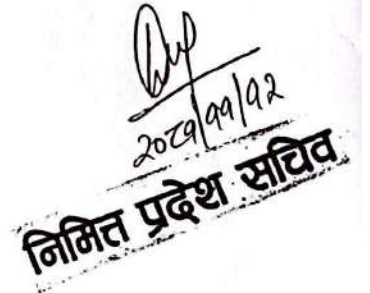 २०८१/११/१२
निमित्त प्रदेश सचिव